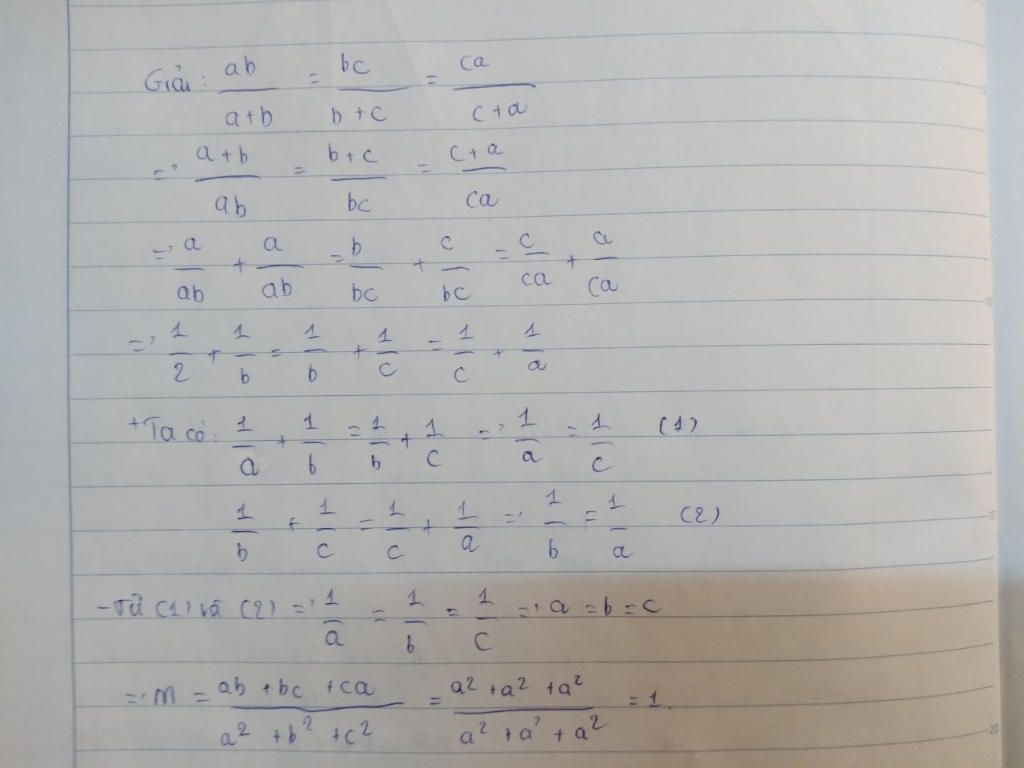 Giải: ab/a+b = bc/b+c = ca/c+a
=> a+b/ab = b+c/bc = c+a/ca
=> a/ab + a/ab = b/bc + c/bc = c/ca + a/ca
=> 1/2 + 1/b = 1/b + 1/c = 1/c + 1/a
+ Ta có: 1/a + 1/b = 1/b + 1/c => 1/a = 1/c (1)
1/b + 1/c = 1/c + 1/a => 1/b = 1/a (2)
- Từ (1) và (2) => 1/a = 1/b = 1/c => a = b = c
=> M = ab + bc + ca/a² + b² + c² = a² + a² + a²/a² + a² + a² = 1.